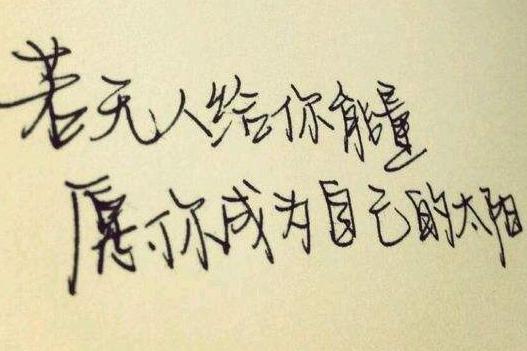 若无人给你能量
愿你成为自己的太阳